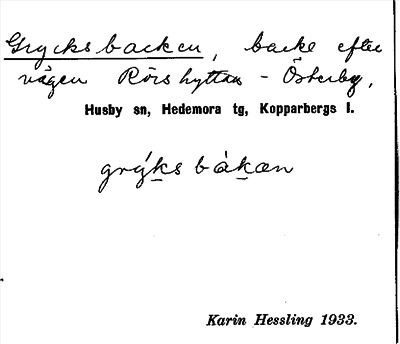 Grycksbacken, backe efter
vägen Rörshyttan - Österby,
Husby sn, Hedemora tg, Kopparbergs l.
grýks bàkæn
Karin Hessling 1933.